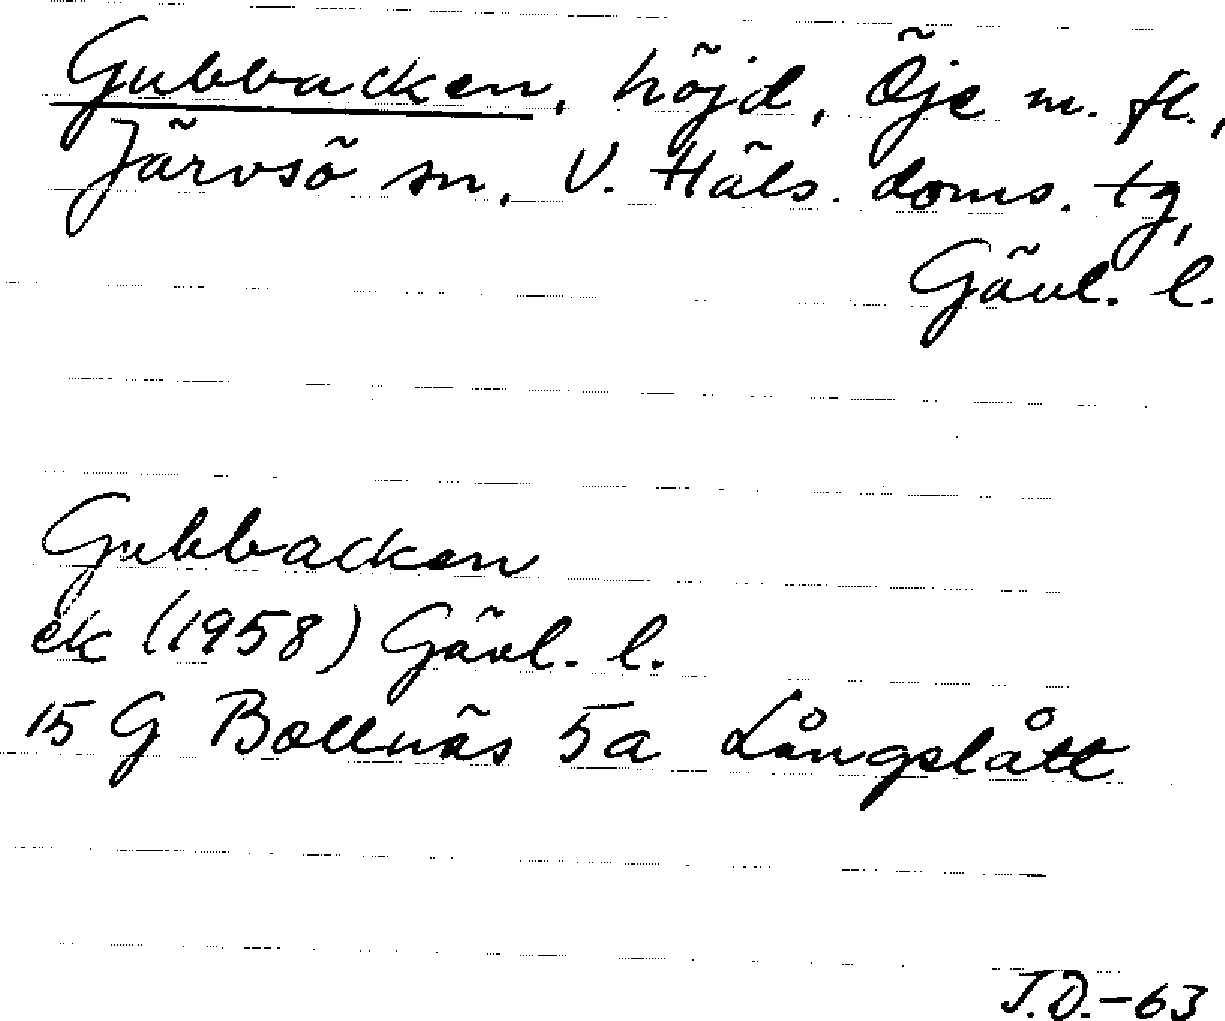 Gubbacken, höjd, Öje m. fl.,
Järvsö sn, V. Häls. doms. tg,
Gävl. l.
Gubbacken
ek (1958) Gävl. l.
15 G Bollnäs 5a Långslått
J.D.-63